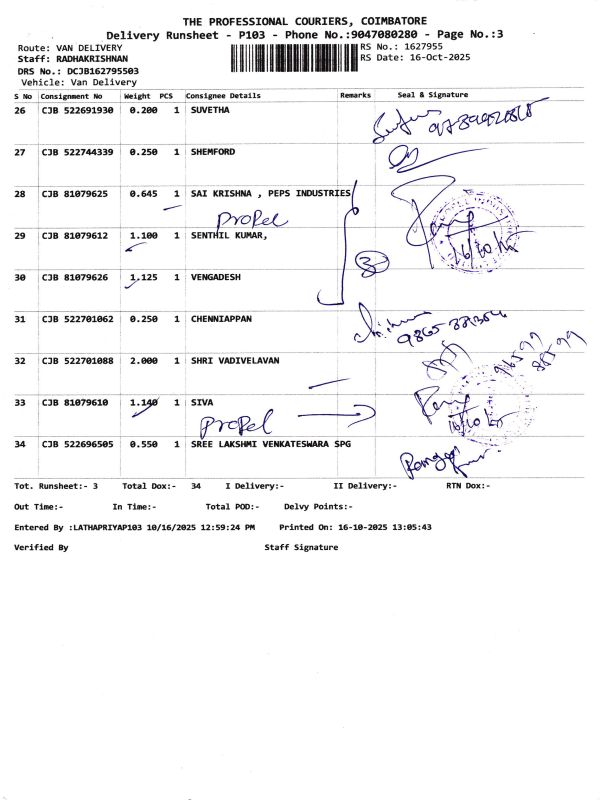 THE PROFESSIONAL COURIERS, COIMBATORE
Delivery Runsheet - P103 - Phone No.:9047080280 - Page No.:3
Route: VAN DELIVERY RS No.: 1627955
Staff: RADHAKRISHNAN RS Date: 16-Oct-2025
DRS No.: DCJB162795503
Vehicle: Van Delivery
S No Consignment No Weight PCS Consignee Details Remarks Seal & Signature
26 CJB 522691930 0.200 1 SUVETHA
27 CJB 522744339 0.250 1 SHEMFORD
28 CJB 81079625 0.645 1 SAI KRISHNA , PEPS INDUSTRIES
Propel
29 CJB 81079612 1.100 1 SENTHIL KUMAR,
16/10
3
30 CJB 81079626 1.125 1 VENGADESH
31 CJB 522701062 0.250 1 CHENNIAPPAN
32 CJB 522701088 2.000 1 SHRI VADIVELAVAN
33 CJB 81079610 1.140 1 SIVA
Propel
16/10
34 CJB 522696505 0.550 1 SREE LAKSHMI VENKATESWARA SPG
Tot. Runsheet:- 3 Total Dox:- 34 I Delivery:- II Delivery:- RTN Dox:-
Out Time:- In Time:- Total POD:- Delvy Points:-
Entered By :LATHAPRIYAP103 10/16/2025 12:59:24 PM Printed On: 16-10-2025 13:05:43
Verified By Staff Signature